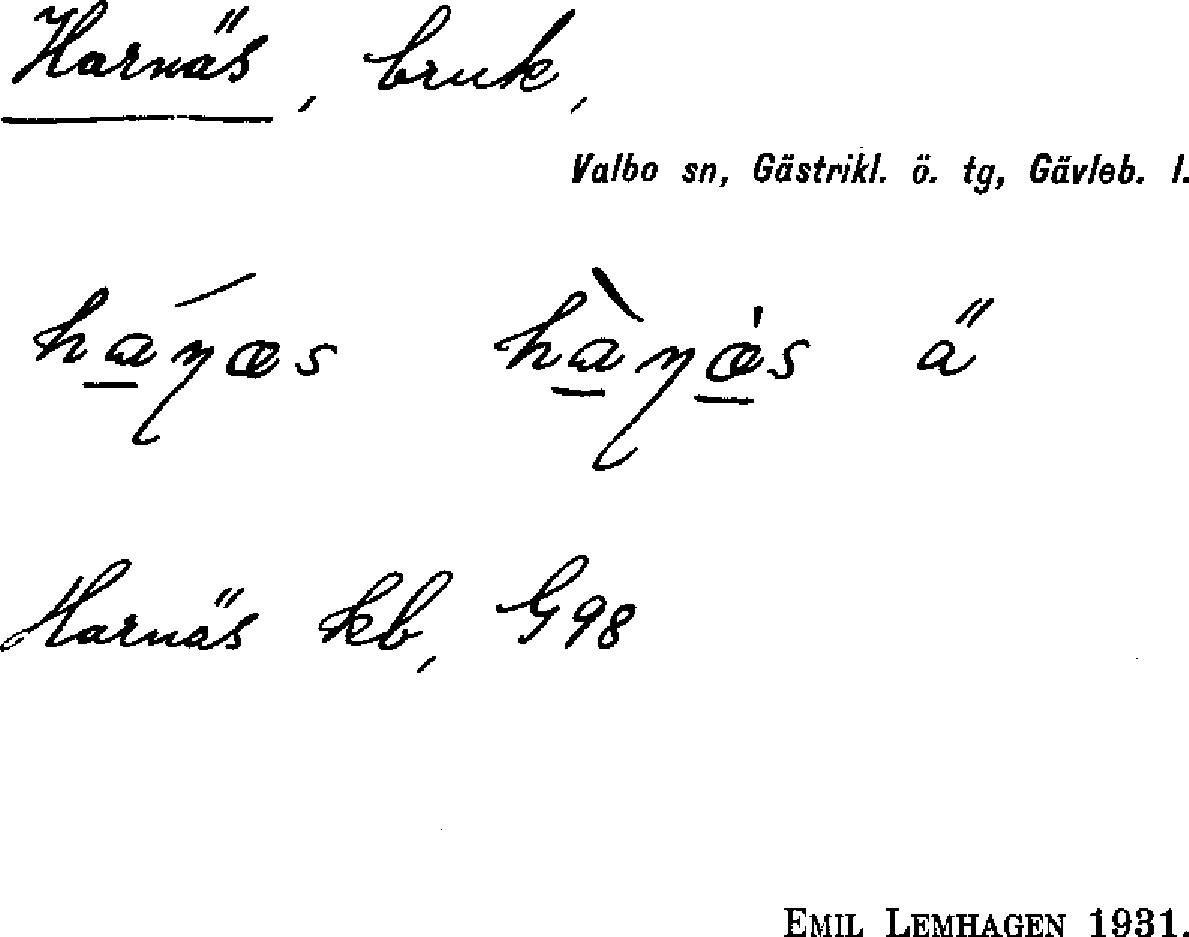 Harnäs, bruk,
Valbo sn, Gästrikl. ö. tg, Gävleb. l.
ha̲ɳæs hà̲ɳæ̲̀s ä
Harnäs kb, G98
EMIL LEMHAGEN 1931.